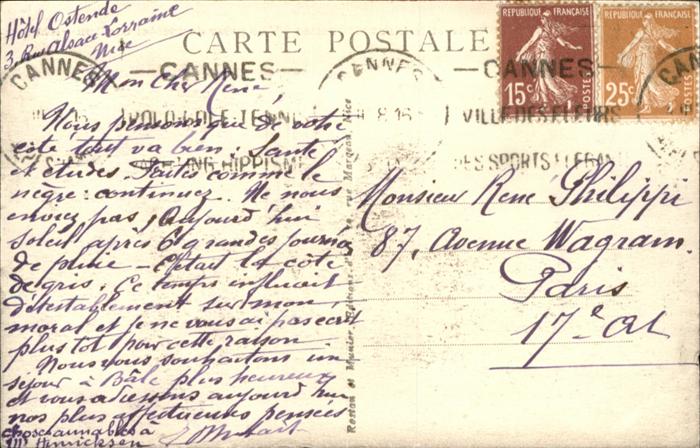 Hôtel Ostende
3, Rue Alsace-Lorraine
Nice
CARTE POSTALE
REPUBLIQUE FRANÇAISE
15c
POSTES
REPUBLIQUE FRANÇAISE
25c
POSTES
CANNES
CANNES
CANNES
CANNES
POLO GOLF TENNIS
YACHTING HIPPISME
VILLE DES FLEURS
DES SPORTS ELEGANTS
Mon Cher René,
Nous pensons que de votre
côté tout va bien. Santé
et études. Faites comme le
nègre: continuez. Ne nous
enviez pas, Aujourd'hui
soleil après 6 grandes journées
de pluie - C'était la côte
de gris. Ce temps influait
détestablement sur mon
moral et je ne vous ai pas écrit
plus tôt pour cette raison.
Nous vous souhaitons un
séjour à Bâle plus heureux
et vous adressons aujourd'hui
nos plus affectueuses pensées
choses aimables à
Hinricksen
Rostan et Munier, Editeurs
Nice
Monsieur René Philippi
87, Avenue Wagram.
Paris
17e Art